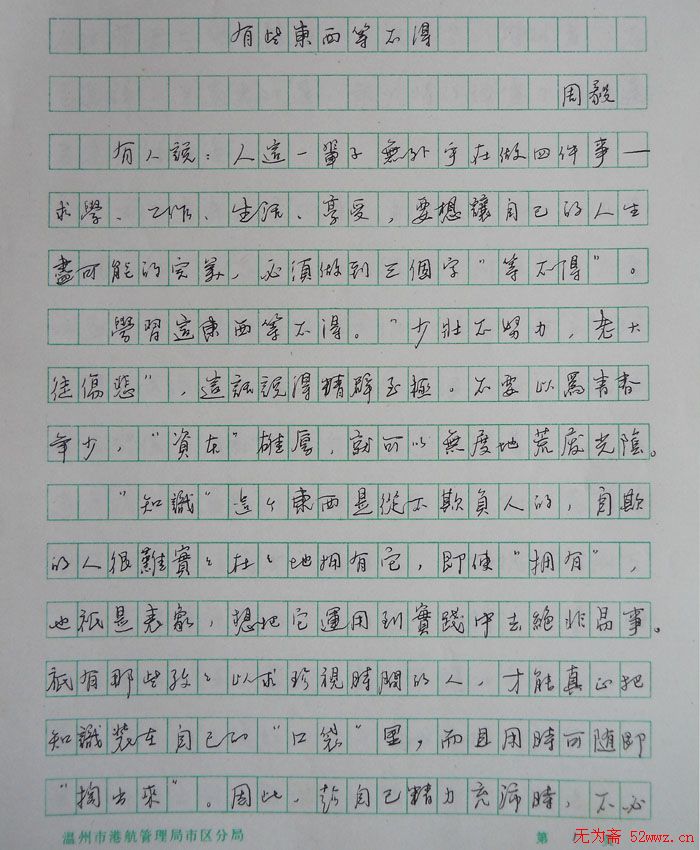 有些東西等不得
周毅
有人説：人這一輩子無外乎在做四件事—
求學、工作、生活、享受，要想讓自己的人生
盡可能的完美，必須做到三個字“等不得”。
學習這東西等不得。“少壯不努力，老大
徒傷悲”，這話説得精辟至極。不要以爲青春
年少，“資本”雄厚，就可以無度地荒廢光陰。
“知識”這个東西是從不欺負人的，自欺
的人很難實々在々地拥有它，即使“拥有”，
也祇是表象，想把它運用到實踐中去絶非易事。
祇有那些孜々以求珍視時間的人，才能真正把
知識裝在自己的“口袋”里，而且用時可随即
“掏出來”。因此，趁自己精力充沛時，不必
温州市港航管理局市区分局
第
无为斋 52wwz.cn